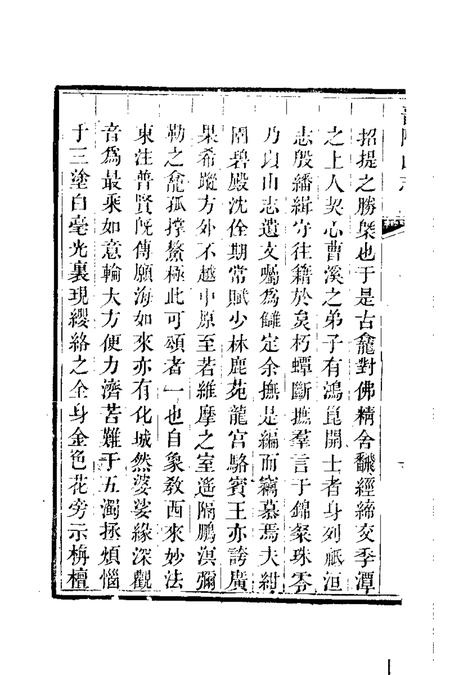 招提之勝槩也于是古龕對佛精舍飜經締交季潭
之上人契心曹溪之弟子有鴻崑開士者身列祇洹
志殷繙緝守往籍於炱朽蟫斷摭羣言于錦粲珠零
乃以山志遺文囑為讎定余撫是編而竊慕焉夫紺
園碧殿沈佺期常賦少林鹿苑龍宮駱賓王亦誇廣
果希蹤方外不越中原至若維摩之室遙隔鵬溟彌
勒之龕孤撐鰲極此可頌者一也自象敎西來妙法
東注普賢旣傳願海如來亦有化城然婆娑緣深觀
音為最乘如意輪大方便力濟苦難于五濁拯煩惱
于三塗白毫光裏現纓絡之全身金色花旁示栴檀